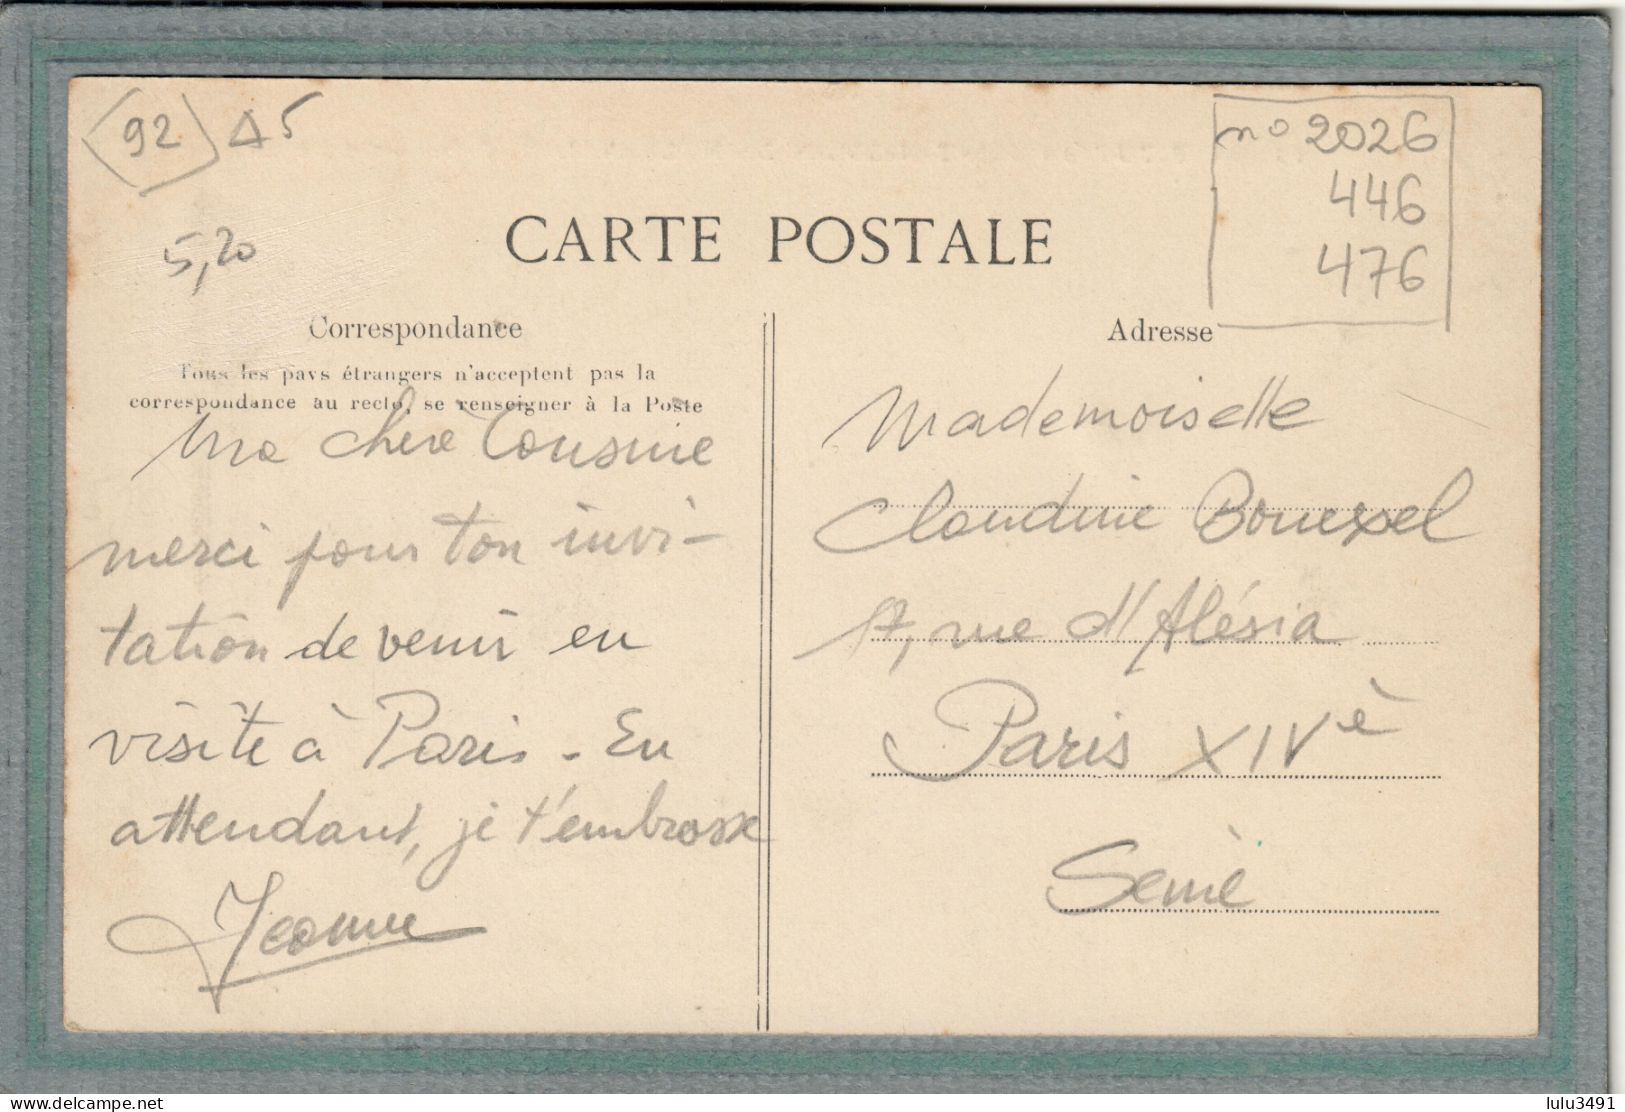 92 Δ5
5,20
no 2026
446
476
CARTE POSTALE
Correspondance
Tous les pays étrangers n'acceptent pas la
correspondance au recto, se renseigner à la Poste
Ma chère Cousine
merci pour ton invi-
tation de venir en
visite à Paris. En
attendant, je t'embrasse
Jeanne
Adresse
Mademoiselle
Claudine Bouexel
17, rue d'Alésia
Paris XIVè
Seine
www.delcampe.net
lulu3491